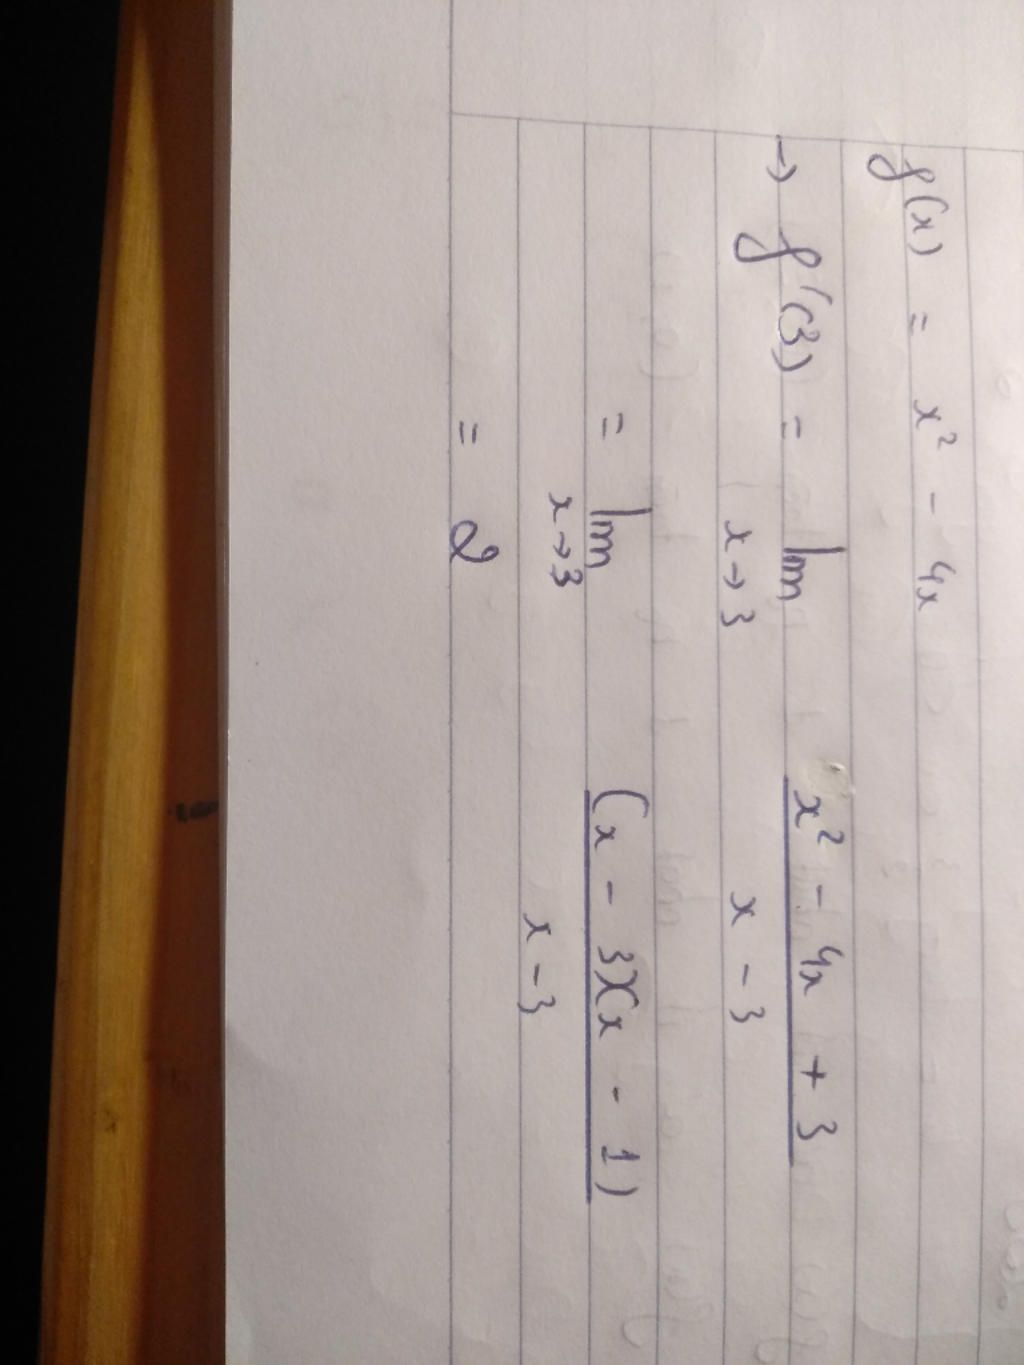 f(x) = x² - 4x
→ f'(3) = lim x→3 x² - 4x + 3 / x - 3
= lim x→3 (x - 3)(x - 1) / x - 3
= 2